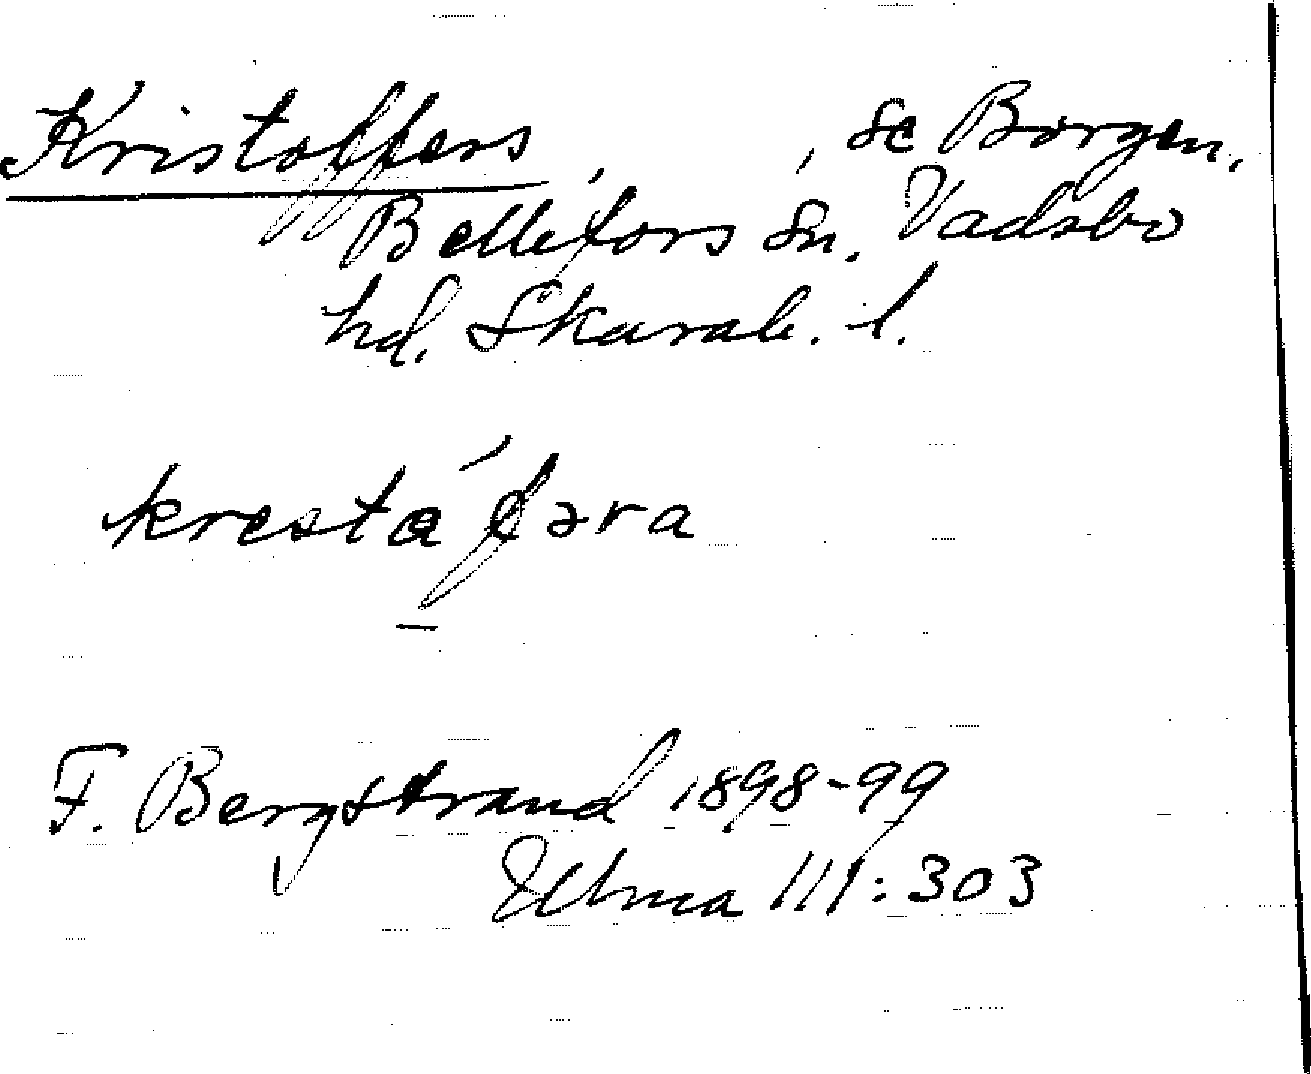 Kristoffers, , se Borgen,
Bällefors sn. Vadsbo
hd. Skarab. l.
krestá fəra
F. Bergstrand 1898-99
Ulma 111:303